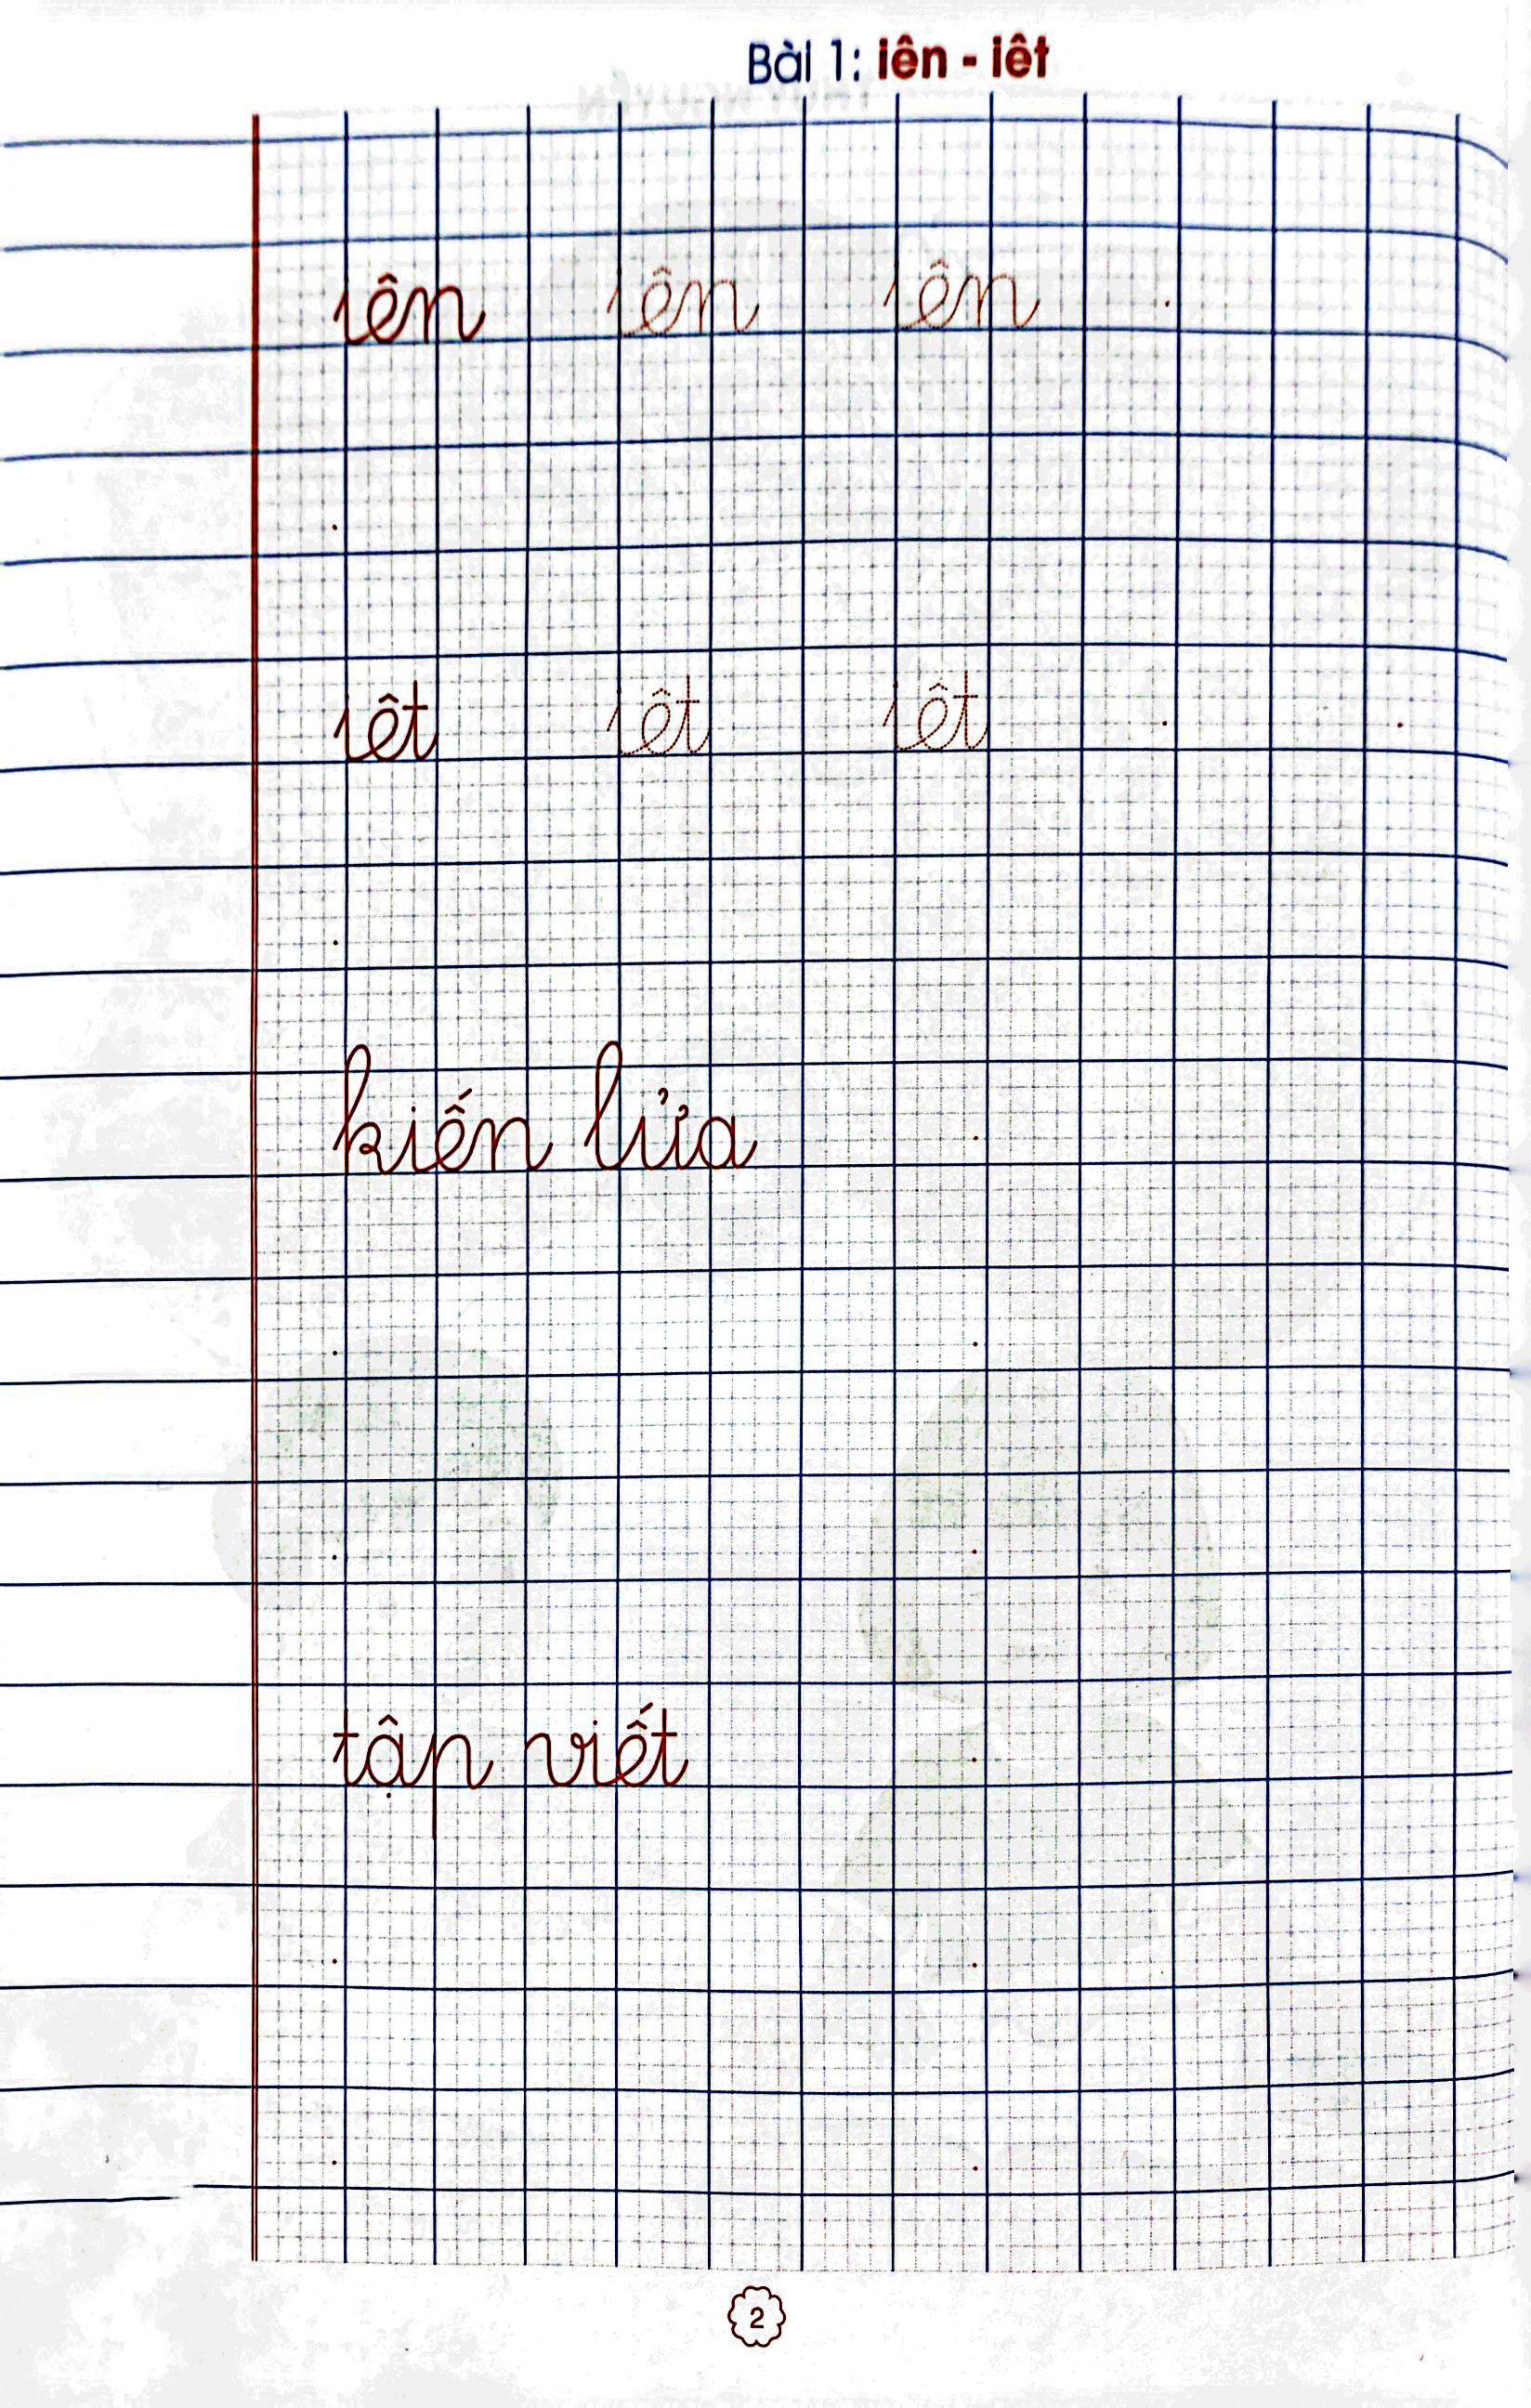 Bài 1: iên - iêt
iên iên iên
iêt iêt iêt
kiến lửa
tập viết
2